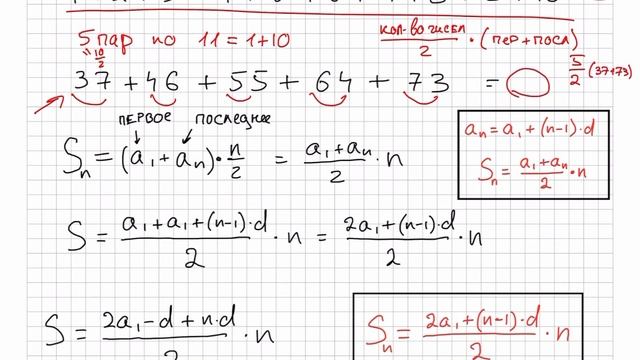 5 пар по 11 = 1+10
10/2
кол-во чисел/2 · (пер + посл)
37 + 46 + 55 + 64 + 73 = 5/2 (37+73)
первое последнее
Sₙ = (a₁ + aₙ) · n/2 = (a₁ + aₙ)/2 · n
aₙ = a₁ + (n-1) · d
Sₙ = (a₁ + aₙ)/2 · n
S = (a₁ + a₁ + (n-1) · d)/2 · n = (2a₁ + (n-1) · d)/2 · n
S = (2a₁ - d + n · d)/2 · n
Sₙ = (2a₁ + (n-1) · d)/2 · n